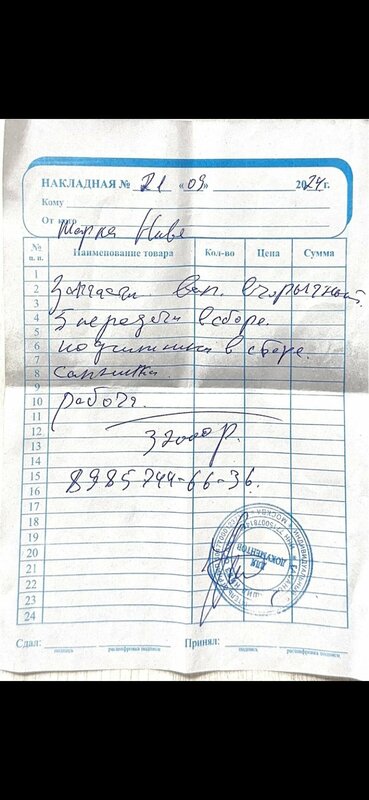 НАКЛАДНАЯ № 21 «09» 2024 г.
Кому
От кого Марка Нива
№ п. п. Наименование товара Кол-во Цена Сумма
1
2 Запчасти вал вторичный.
3
4 5 передачи в сборе.
5
6 подшипники в сборе.
7
8 сальники.
9
10 работа.
11
12
13 32000 р.
14
15 8985-744-66-36.
16
17
18
19
20
21
22
23
24
ДЛЯ ДОКУМЕНТОВ
Сдал: подпись расшифровка подписи Принял: подпись расшифровка подписи